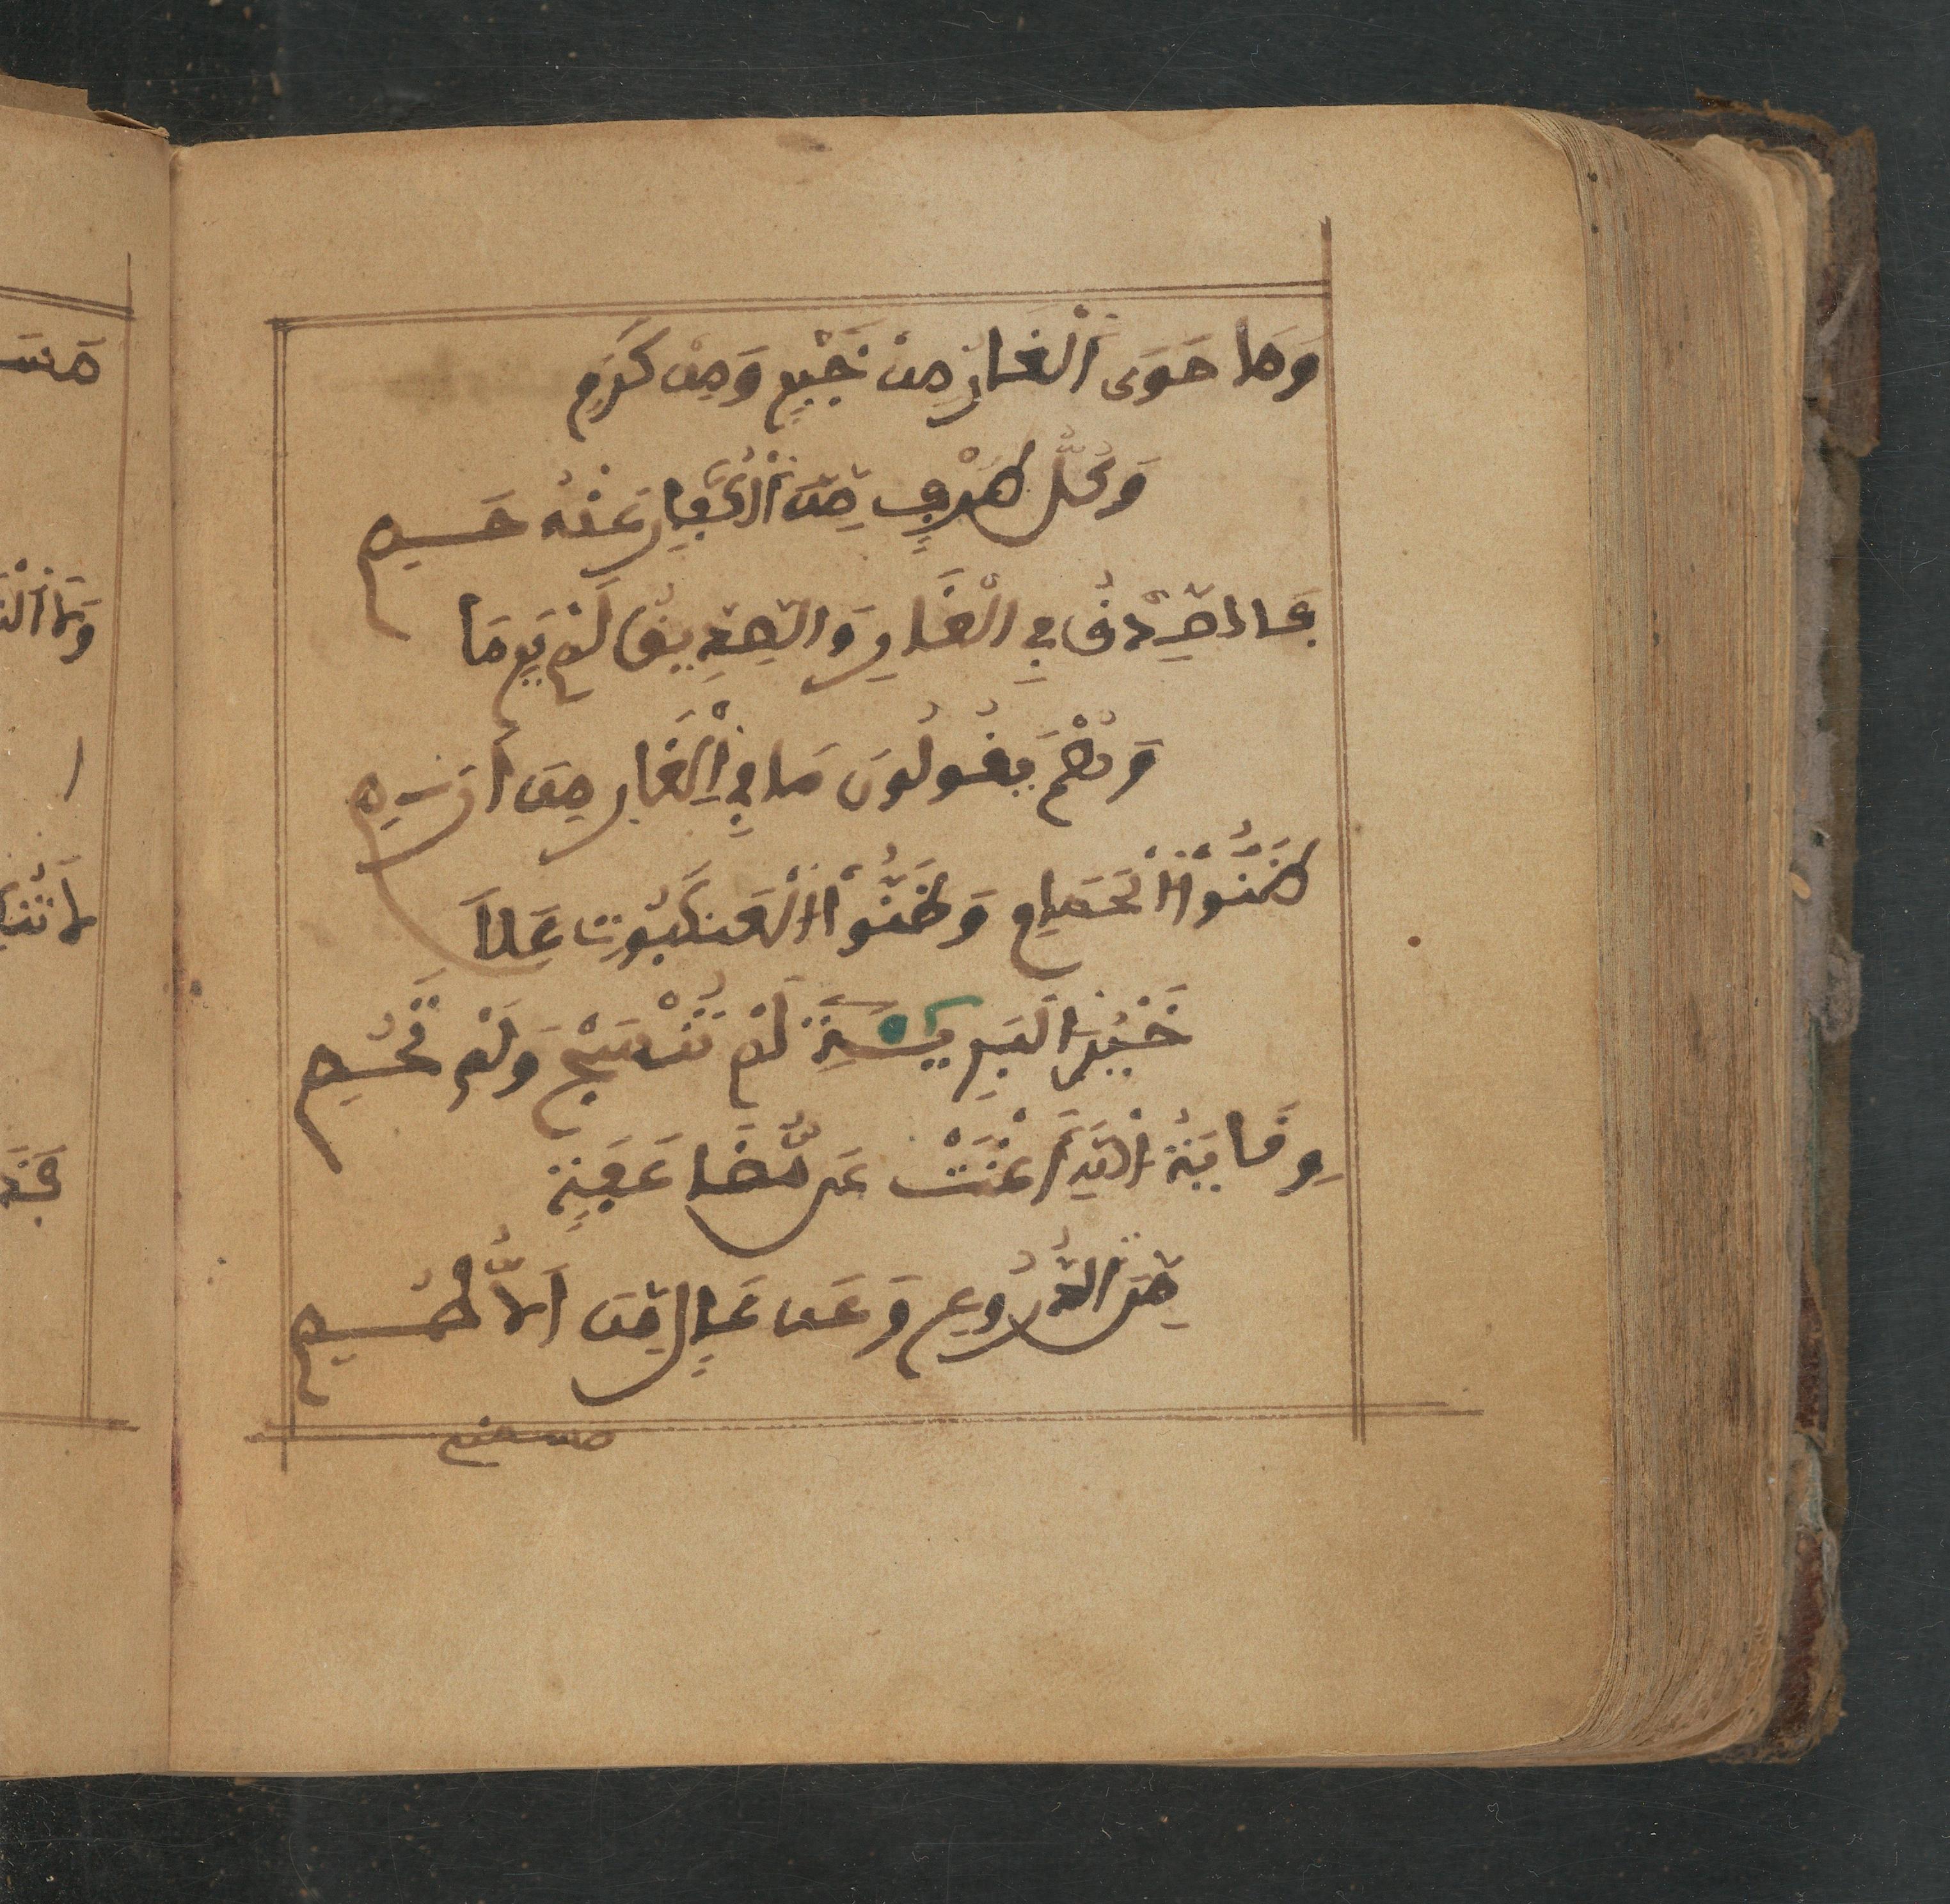 وَمَا حَوَى اَلْغَارُ مِنْ خَيْرٍ وَمِنْ كَرَمٍ
وَكُلُّ طَرْفٍ مِّنَ اَلْكُفَّارِ عَنْهُ عَمِ
فَالصِّدْقُ فِي الْغَارِ وَالصِّدِّيقُ لَمْ يَرِمَا
وَهُمْ يَقُولُونَ مَا فِي اِلْغَارِ مِنْ أَرِمِ
ظَنُّواْ اَلْحَمَامِ وَظَنُّواْ اَلْعَنكَبُوتِ عَلَا
خَيْرِ اَلْبَرِيَّةِ لَمْ تَنْسُجْ وَلَمْ تَحُمِ
وِقَايَةُ اَللَّهِ أَغْنَتْ عَن مُّضَاعَفَةٍ
مِّنَ اَلدُّرُوعِ وَعَن عَالٍ مِّنَ اَلْأُطُمِ